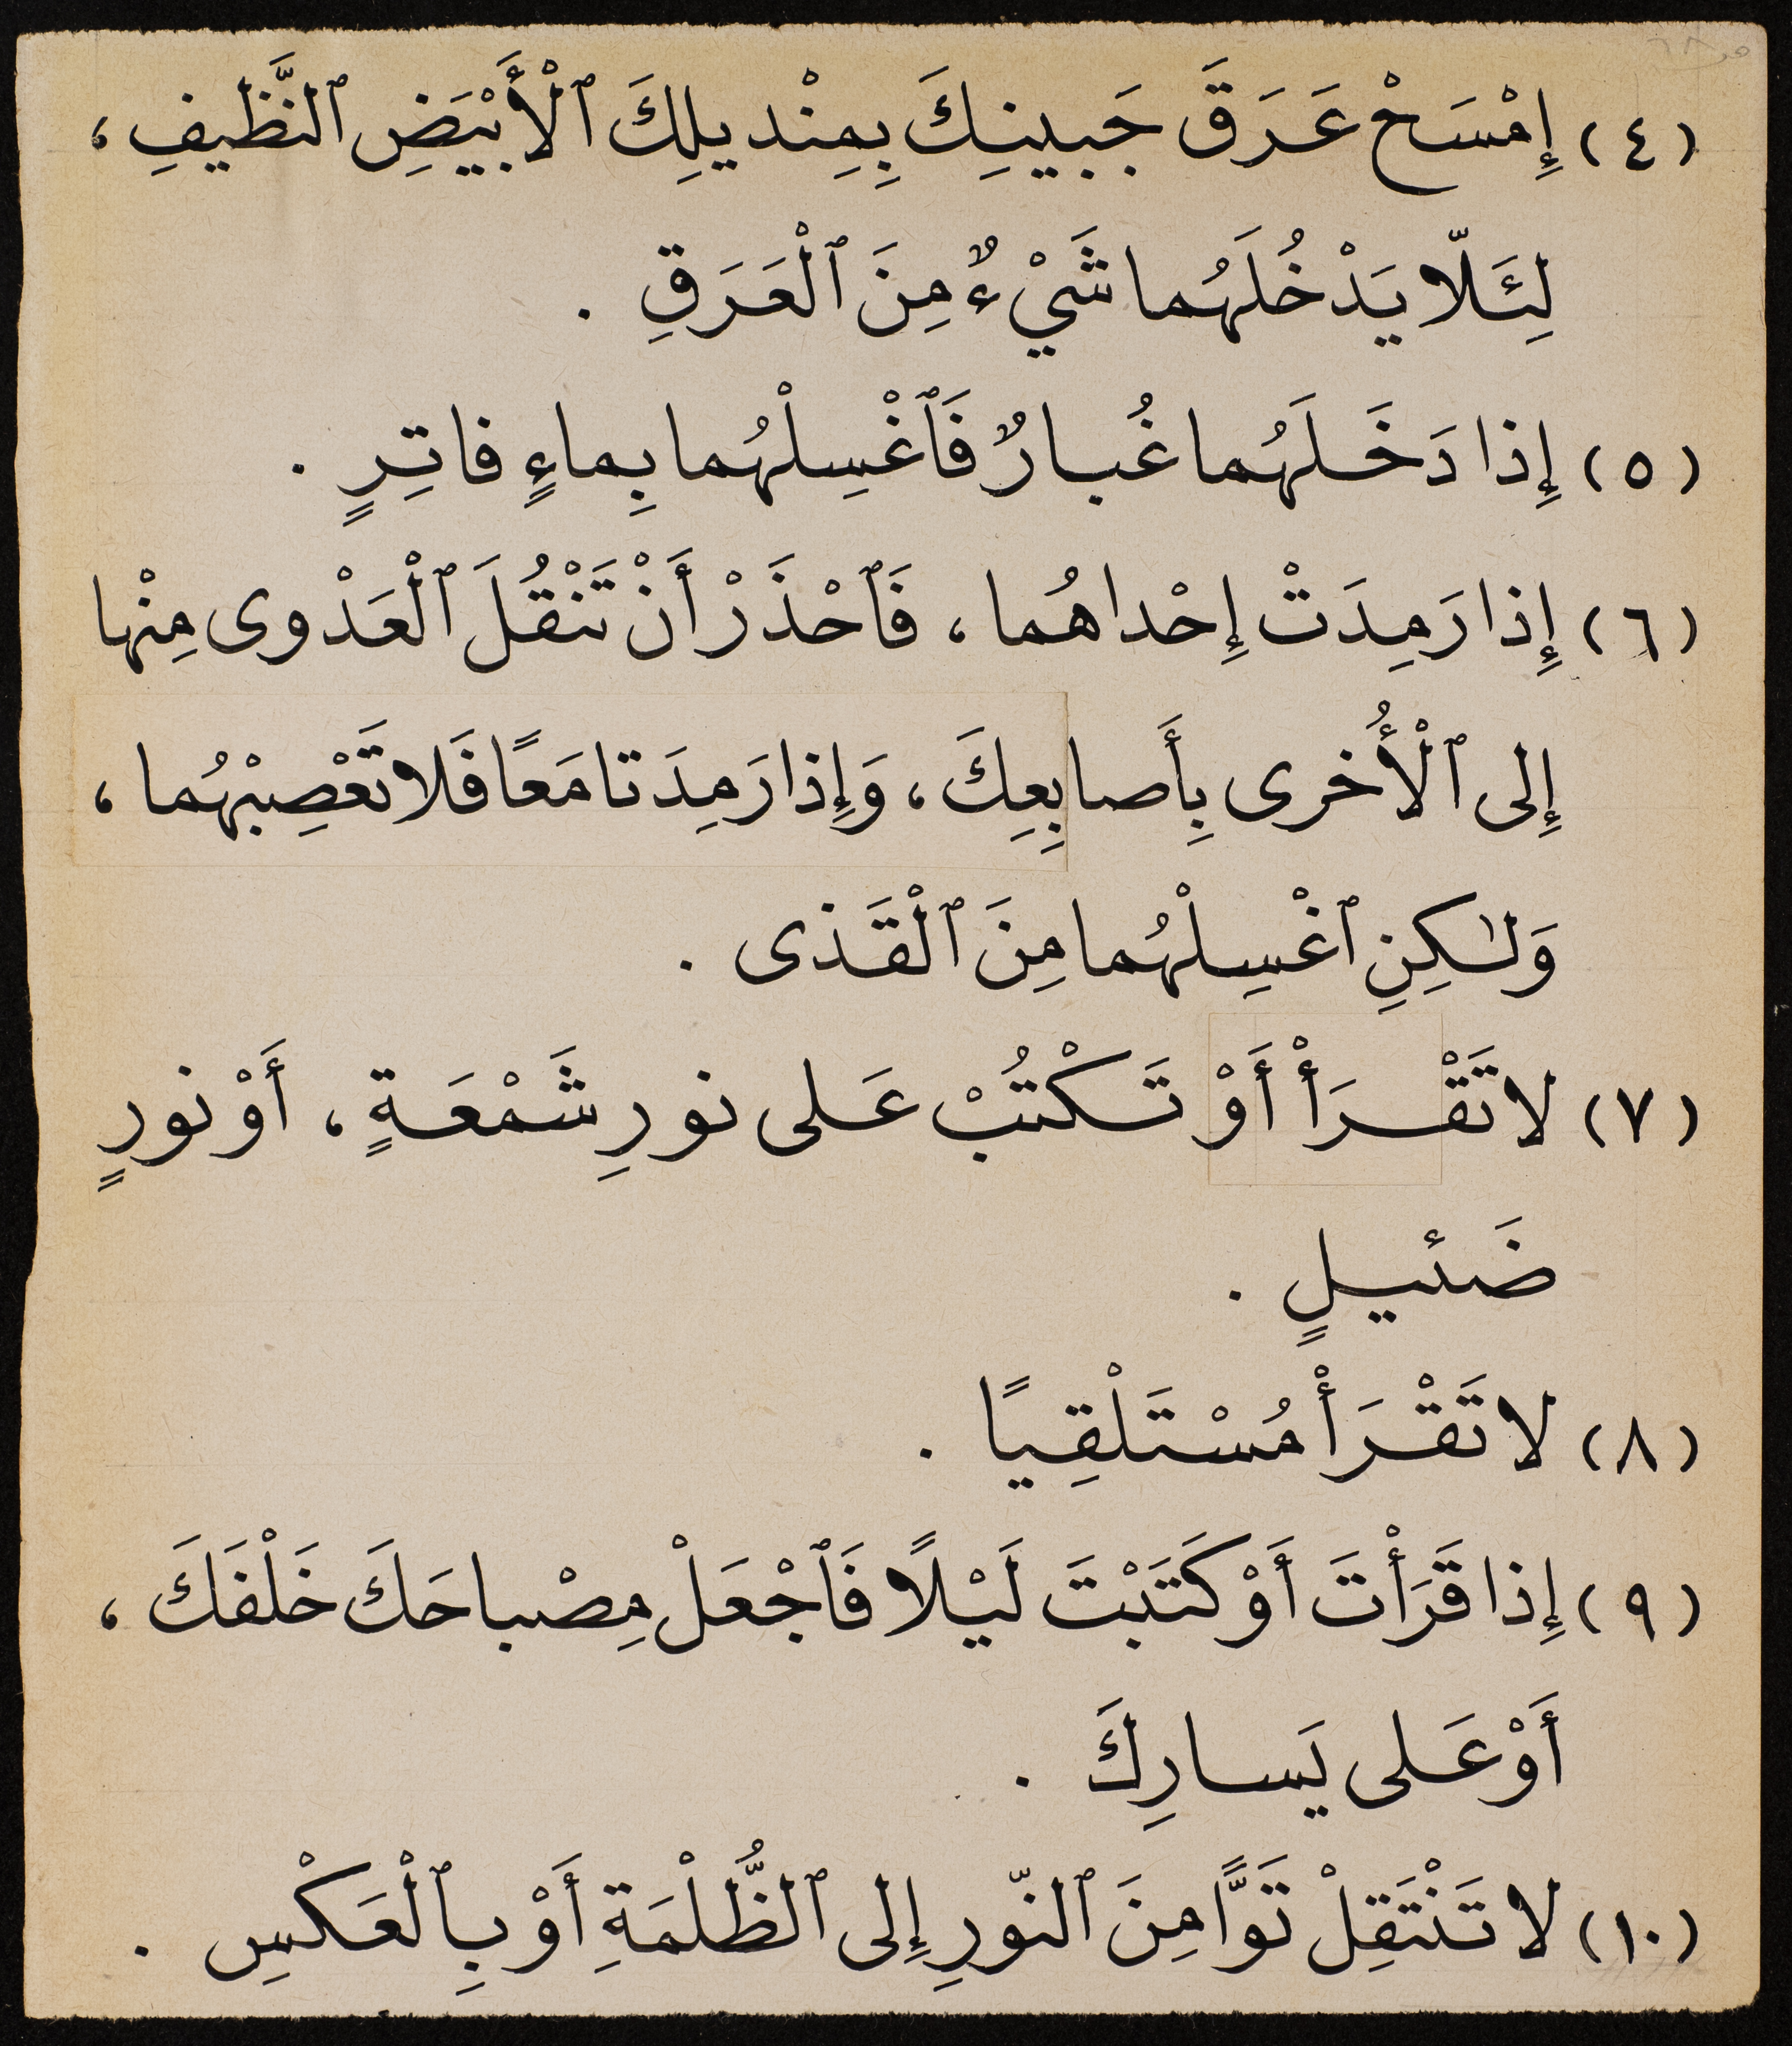 (٤) إِمْسَحْ عَرَقَ جَبينِكَ بِمِنْديلِكَ ٱلْأَبْيَضِ ٱلنَّظيفِ ،
لِئَلّا يَدْخُلَهُما شَيْءٌ مِنَ ٱلْعَرَقِ .
(٥) إِذا دَخَلَهُما غُبارٌ فَٱغْسِلْهُما بِماءٍ فاتِرٍ .
(٦) إِذا رَمِدَتْ إِحْداهُما ، فَٱحْذَرْ أَنْ تَنْقُلَ ٱلْعَدْوى مِنْها
إِلى ٱلْأُخرى بِأَصابِعِكَ ، وَإِذا رَمِدَتا مَعًا فَلا تَعْصِبْهُما ،
وَلٰكِنِ ٱغْسِلْهُما مِنَ ٱلْقَذى .
(٧) لا تَقْرَأْ أَوْ تَكْتُبْ عَلى نورِ شَمْعَةٍ ، أَوْ نورٍ
ضَئيلٍ .
(٨) لا تَقْرَأْ مُسْتَلْقِيًا .
(٩) إِذا قَرَأْتَ أَوْ كَتَبْتَ لَيْلًا فَٱجْعَلْ مِصْباحَكَ خَلْفَكَ ،
أَوْ عَلى يَسارِكَ .
(١٠) لا تَنْتَقِلْ تَوًّا مِنَ ٱلنّورِ إِلى ٱلظُّلْمَةِ أَوْ بِٱلْعَكْسِ .